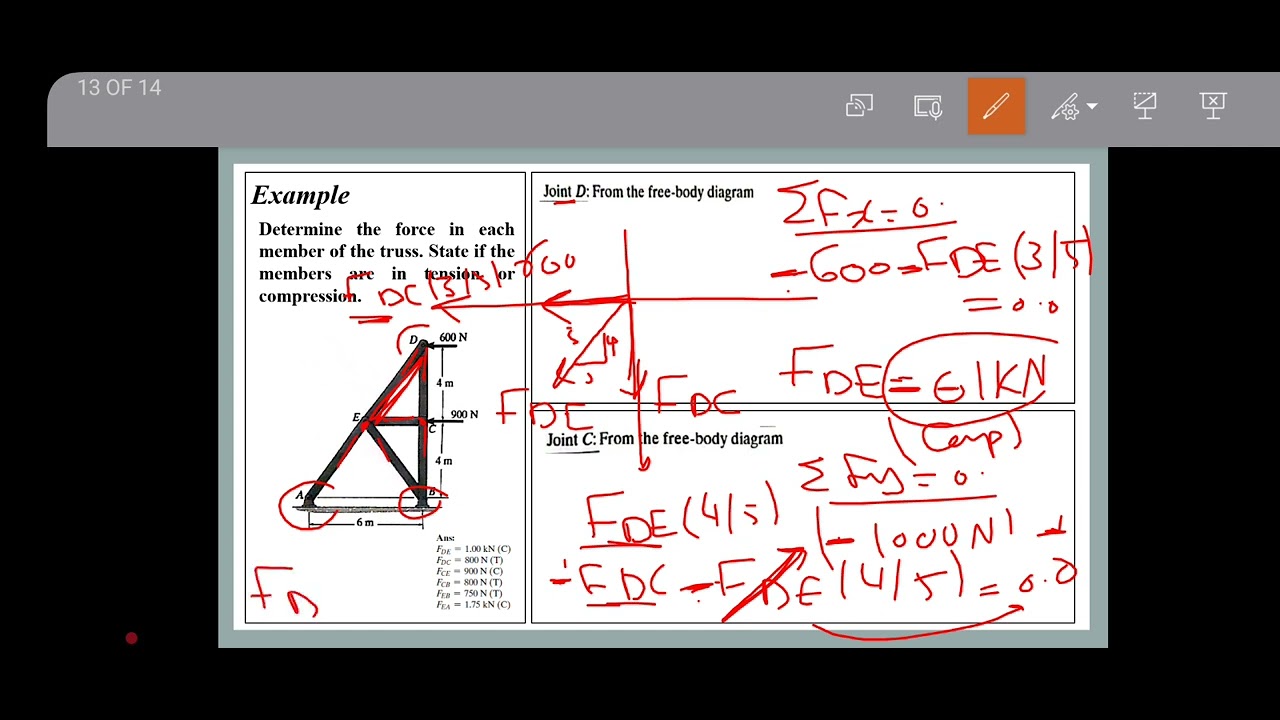 13 OF 14
Example
Determine the force in each
member of the truss. State if the
members are in tension or
compression.
D
600 N
4 m
E
900 N
C
4 m
A
B
6 m
Ans:
F_DE = 1.00 kN (C)
F_DC = 800 N (T)
F_CE = 900 N (C)
F_CB = 800 N (T)
F_EB = 750 N (T)
F_EA = 1.75 kN (C)
FD
Joint D: From the free-body diagram
600
FDC(3/5)
5
4
3
FDE
FDC
ΣFx=0.
-600-FDE(3/5)
=0.0
FDE=-1KN
(Comp)
Joint C: From the free-body diagram
ΣFy=0.
FDE(4/5)
(-1000N)
-FDC-FDE(4/5)=0.0